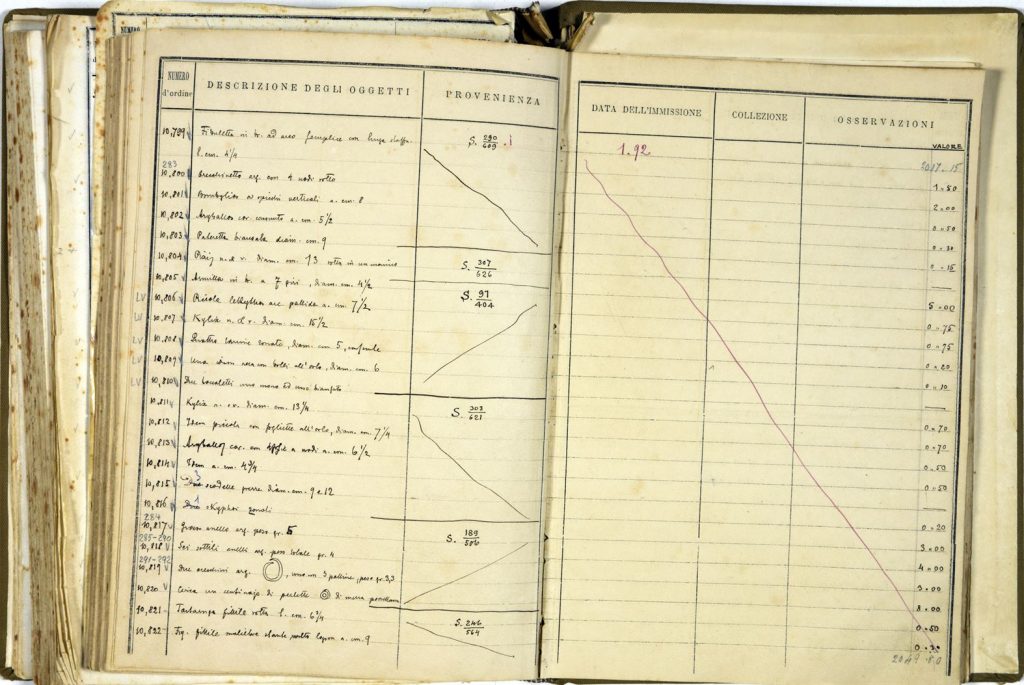 NUMERO d'ordine DESCRIZIONE DEGLI OGGETTI PROVENIENZA DATA DELL'IMMISSIONE COLLEZIONE OSSERVAZIONI
VALORE
2017.15
10,799 Fibuletta in br. ad arco semplice con lunga staffa S. 290/609 1.92
l. cm. 4 1/4
283
10,800 Orecchinetto arg. con 4 nodi rotto 1=50
10,801 Bombylios a spicchi verticali a. cm. 8 2=00
10,802 Aryballos cor. consunto a. cm. 5 1/2 0=50
10,803 Pateretta biansata diam. cm. 9 0=30
10,804 n. e r. diam. cm. 13 rotta in un manico S. 307/626 0=15
10,805 Armilla in br. a 7 giri, diam. cm. 4 1/2
LV 10,806 Piccole lekythos arc. pallida a. cm. 7 1/2 S. 97/404 5=00
LV 10,807 Kylix n. e r. diam. cm. 15 1/2 0=75
LV 10,808 Quattro zonate, diam. cm 5, 0=75
LV 10,809 Una all'orlo, diam. cm. 6 0=20
LV 10,810 Due boccaletti uno mono ed uno biansato 0=10
10,811 Kylix n. e r. diam. cm. 13 1/4 S. 303/621
10,812 Idem piccola con fogliette all'orlo, diam. cm. 7 1/4 0=70
10,813 Aryballos cor. a nodi a. cm. 6 1/2 0=70
10,814 Idem a. cm. 4 3/4 0=50
10,815 3 scodelle diam. cm. 9 e 12 0=50
10,816 Due skyphoi zonati
284
10,817 Grosso anello arg. peso gr. 5 S. 189/506 0=20
285-290
10,818 Sei sottili anelli arg. peso totale gr. 4 3=00
291-292
10,819 Due orecchini arg. , uno con 3 palline, peso gr. 3,3 4=00
10,820 Circa un centinajo di perlette di 3=00
10,821 Tartaruga fittile rotta l. cm. 6 3/4 S. 246/564 8=00
0=50
10,822 Fig. fittile muliebre stante molto a. cm. 9 0=30
2049.80